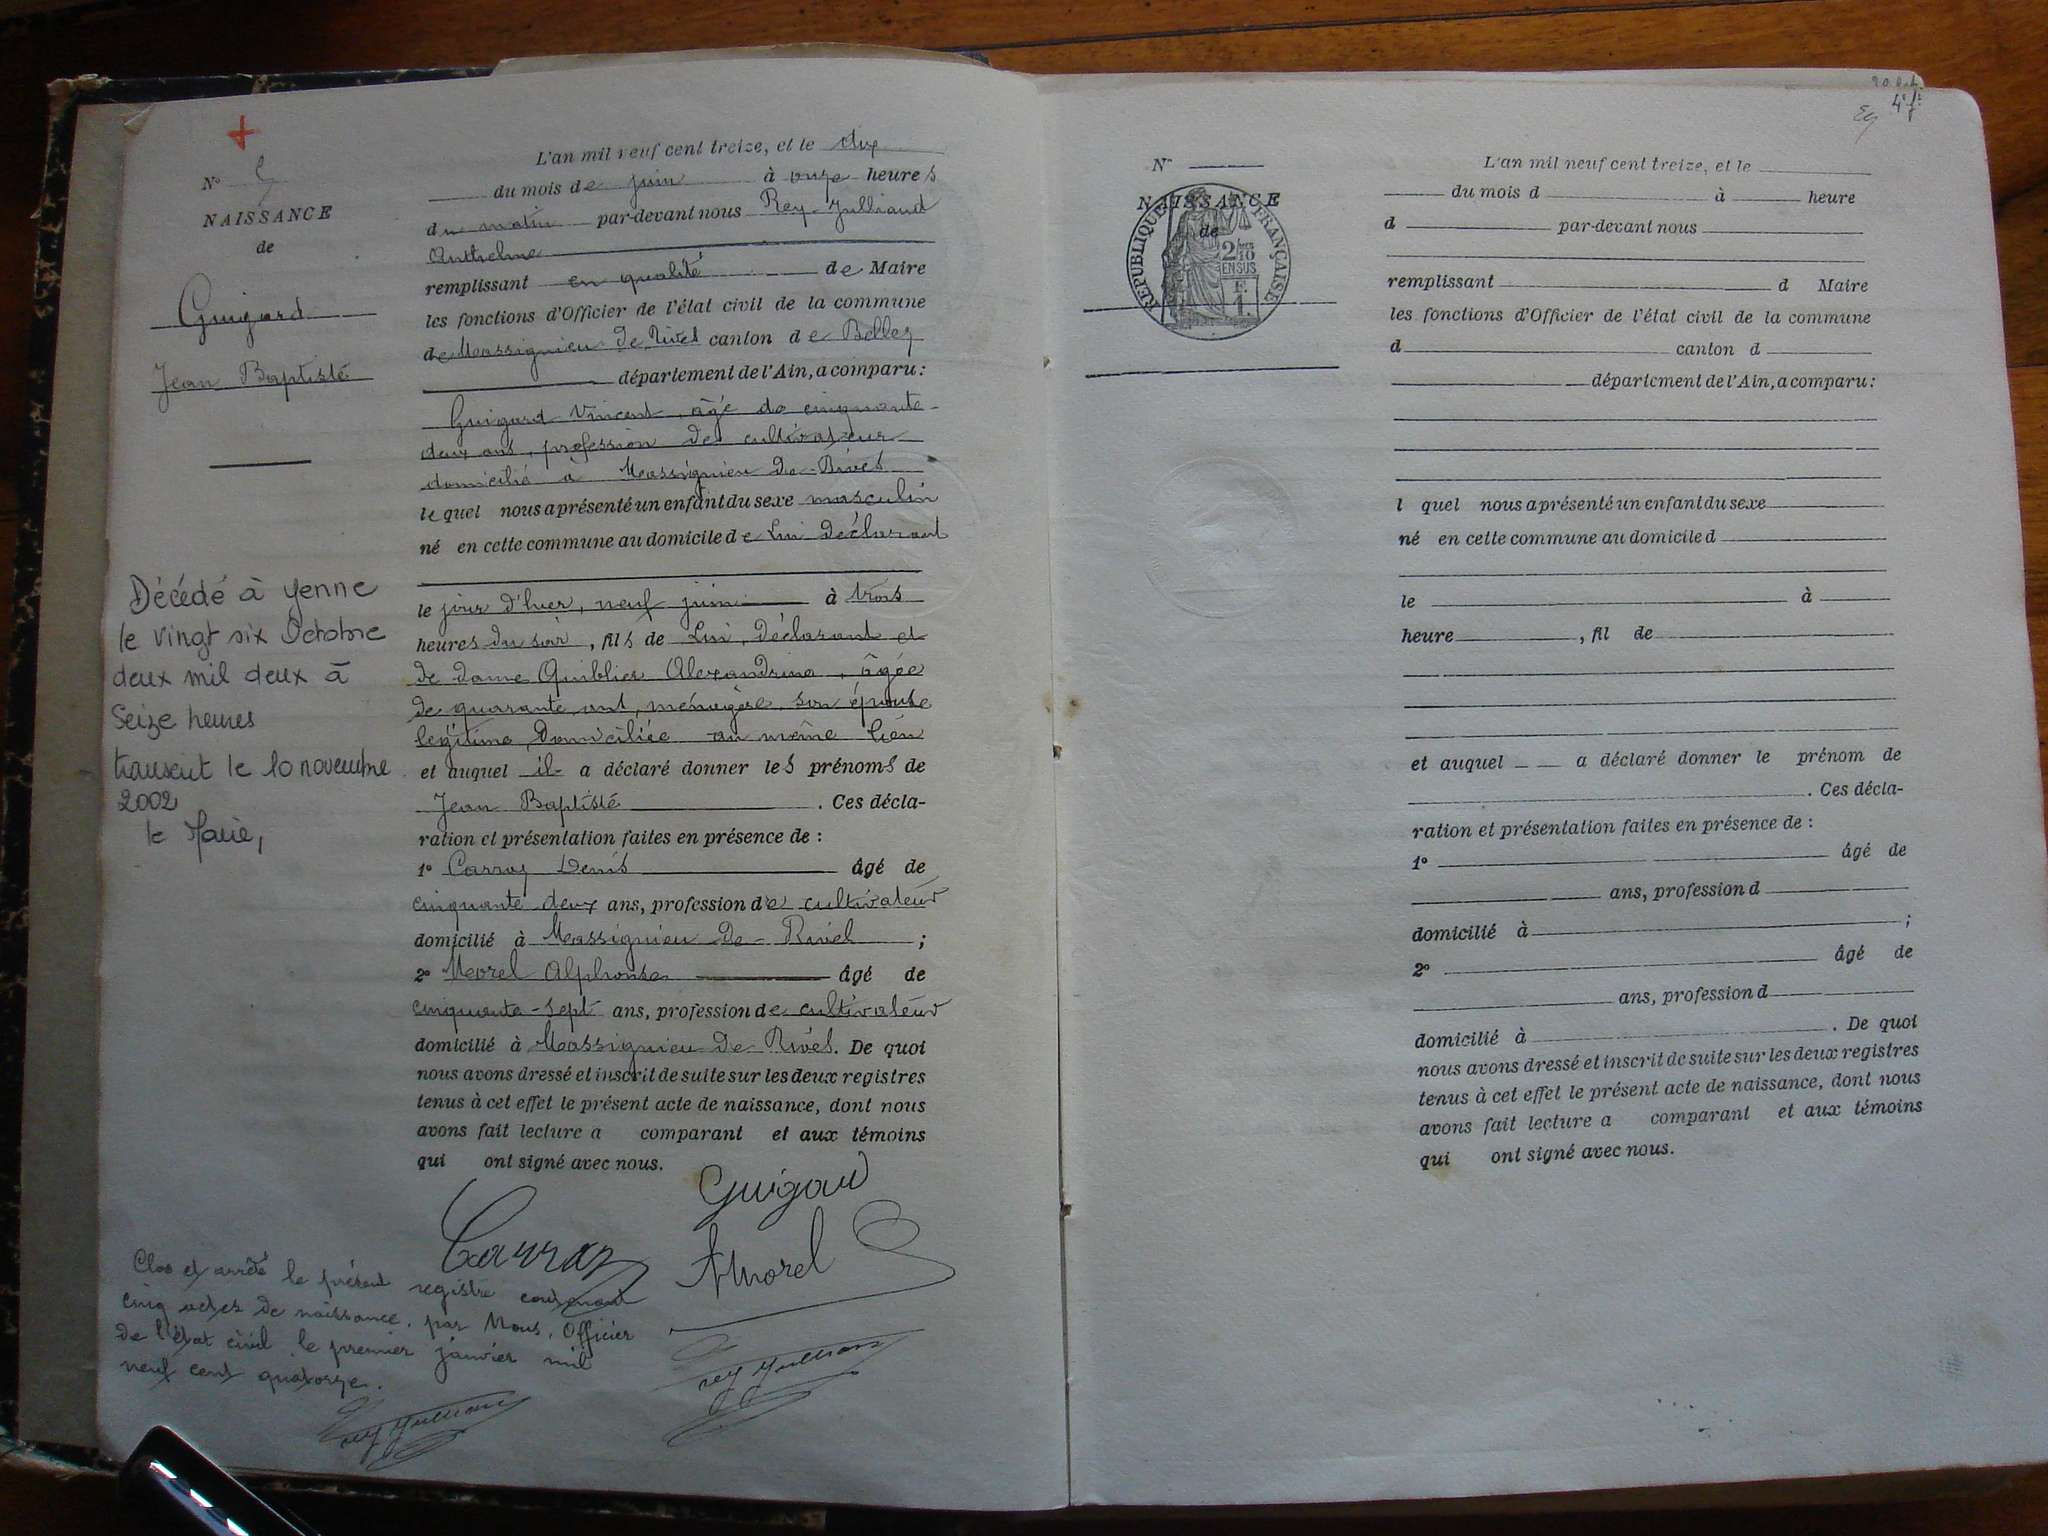 N°
NAISSANCE
de
Guigard
Jean Baptiste
Décédé à Yenne
le vingt six Octobre
deux mil deux à
Seize heures
transcrit le 10 novembre
2002
le Maire,
L'an mil neuf cent treize, et le dix
du mois de juin à onze heures
du matin par-devant nous Rey-Julliand
Anthelme
remplissant en qualité de Maire
les fonctions d'Officier de l'état civil de la commune
de Massignieu de Rives canton de Belley
département de l'Ain, a comparu :
Guigard Vincent, âgé de cinquante-
deux ans, profession de cultivateur
domicilié à Massignieu De-Rives
lequel nous a présenté un enfant du sexe masculin
né en cette commune au domicile de Lui Déclarant
le jour d'hier, neuf juin à trois
heures du soir, fils de Lui, Déclarant et
de dame Quiblier Alexandrine, âgée
de quarante ans, ménagère, son épouse
légitime, Domiciliée au même lieu
et auquel il a déclaré donner les prénoms de
Jean Baptiste . Ces décla-
ration et présentation faites en présence de :
1° Carraz Denis âgé de
cinquante deux ans, profession de cultivateur
domicilié à Massignieu De-Rives ;
2° Morel Alphonse âgé de
cinquante-sept ans, profession de cultivateur
domicilié à Massignieu De Rives. De quoi
nous avons dressé et inscrit de suite sur les deux registres
tenus à cet effet le présent acte de naissance, dont nous
avons fait lecture a comparant et aux témoins
qui ont signé avec nous.
Guigard
Carraz
A Morel
Rey Julliand
Clos et arrêté le présent registre contenant
cinq actes de naissance, par Nous, Officier
de l'état civil le premier janvier mil
neuf cent quatorze.
Rey Julliand
4e ft
N°
NAISSANCE
de
RÉPUBLIQUE FRANÇAISE
2/10
EN SUS
L'an mil neuf cent treize, et le
du mois d à heure
d par-devant nous
remplissant d Maire
les fonctions d'Officier de l'état civil de la commune
d canton d
département de l'Ain, a comparu :
l quel nous a présenté un enfant du sexe
né en cette commune au domicile d
le à
heure , fil de
et auquel a déclaré donner le prénom de
. Ces décla-
ration et présentation faites en présence de :
1° âgé de
ans, profession d
domicilié à ;
2° âgé de
ans, profession d
domicilié à . De quoi
nous avons dressé et inscrit de suite sur les deux registres
tenus à cet effet le présent acte de naissance, dont nous
avons fait lecture a comparant et aux témoins
qui ont signé avec nous.